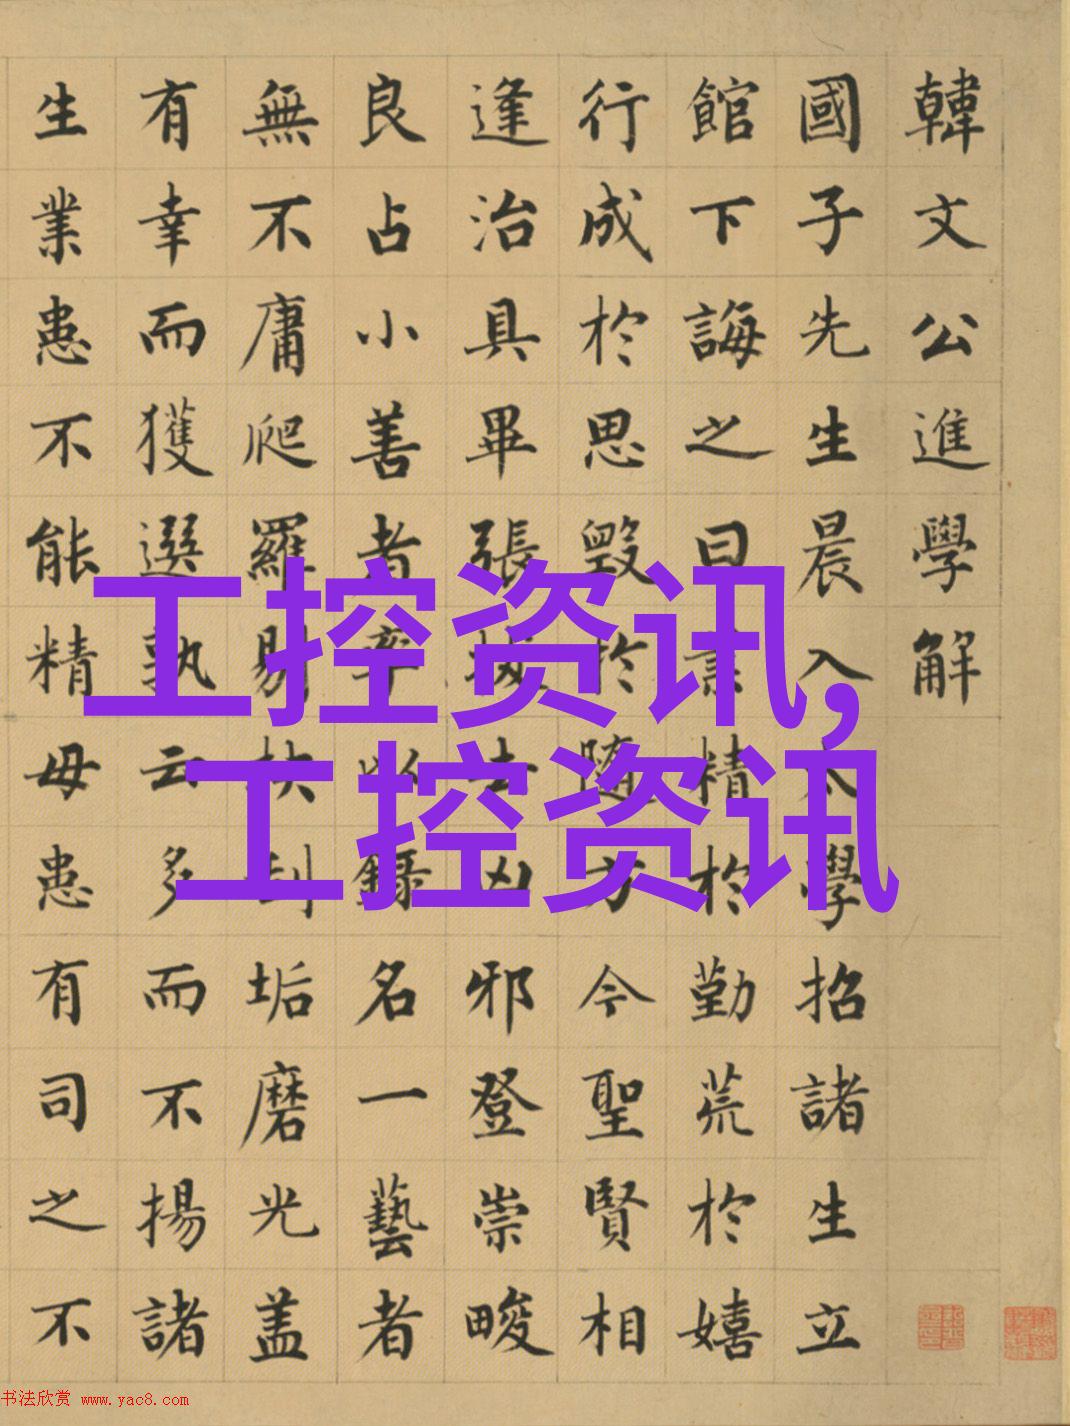 韓文公進學解
國子先生晨入太學招諸生立
館下誨之曰業精於勤荒於嬉
行成於思毀於隨方今聖賢相
逢治具畢張拔去凶邪登崇畯
良占小善者率以錄名一藝者
無不庸爬羅剔抉刮垢磨光盖
有幸而獲選孰云多而不揚諸
生業患不能精母患有司之不
工控资讯,
工控资讯
书法欣赏 www.yac8.com